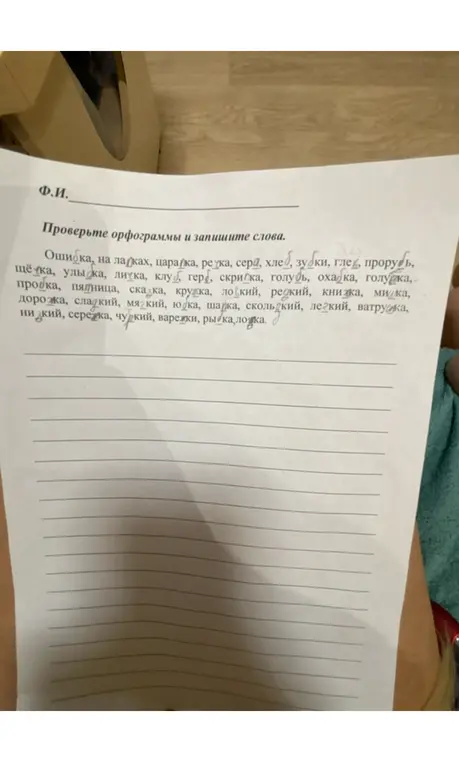 Ф.И.
Проверьте орфограммы и запишите слова.
Ошибка, на лапках, царапка, редка, серп, хлеб, зубки, глеб, прорубь,
щётка, улыбка, липка, клуб, герб, скрипка, голубь, охапка, голубка,
пробка, пятница, сказка, кружка, ловкий, резкий, книжка, мишка,
дорожка, сладкий, мягкий, юбка, шапка, скользкий, легкий, ватрушка,
низкий, сережка, чуткий, варежки, рыбка,ложка.